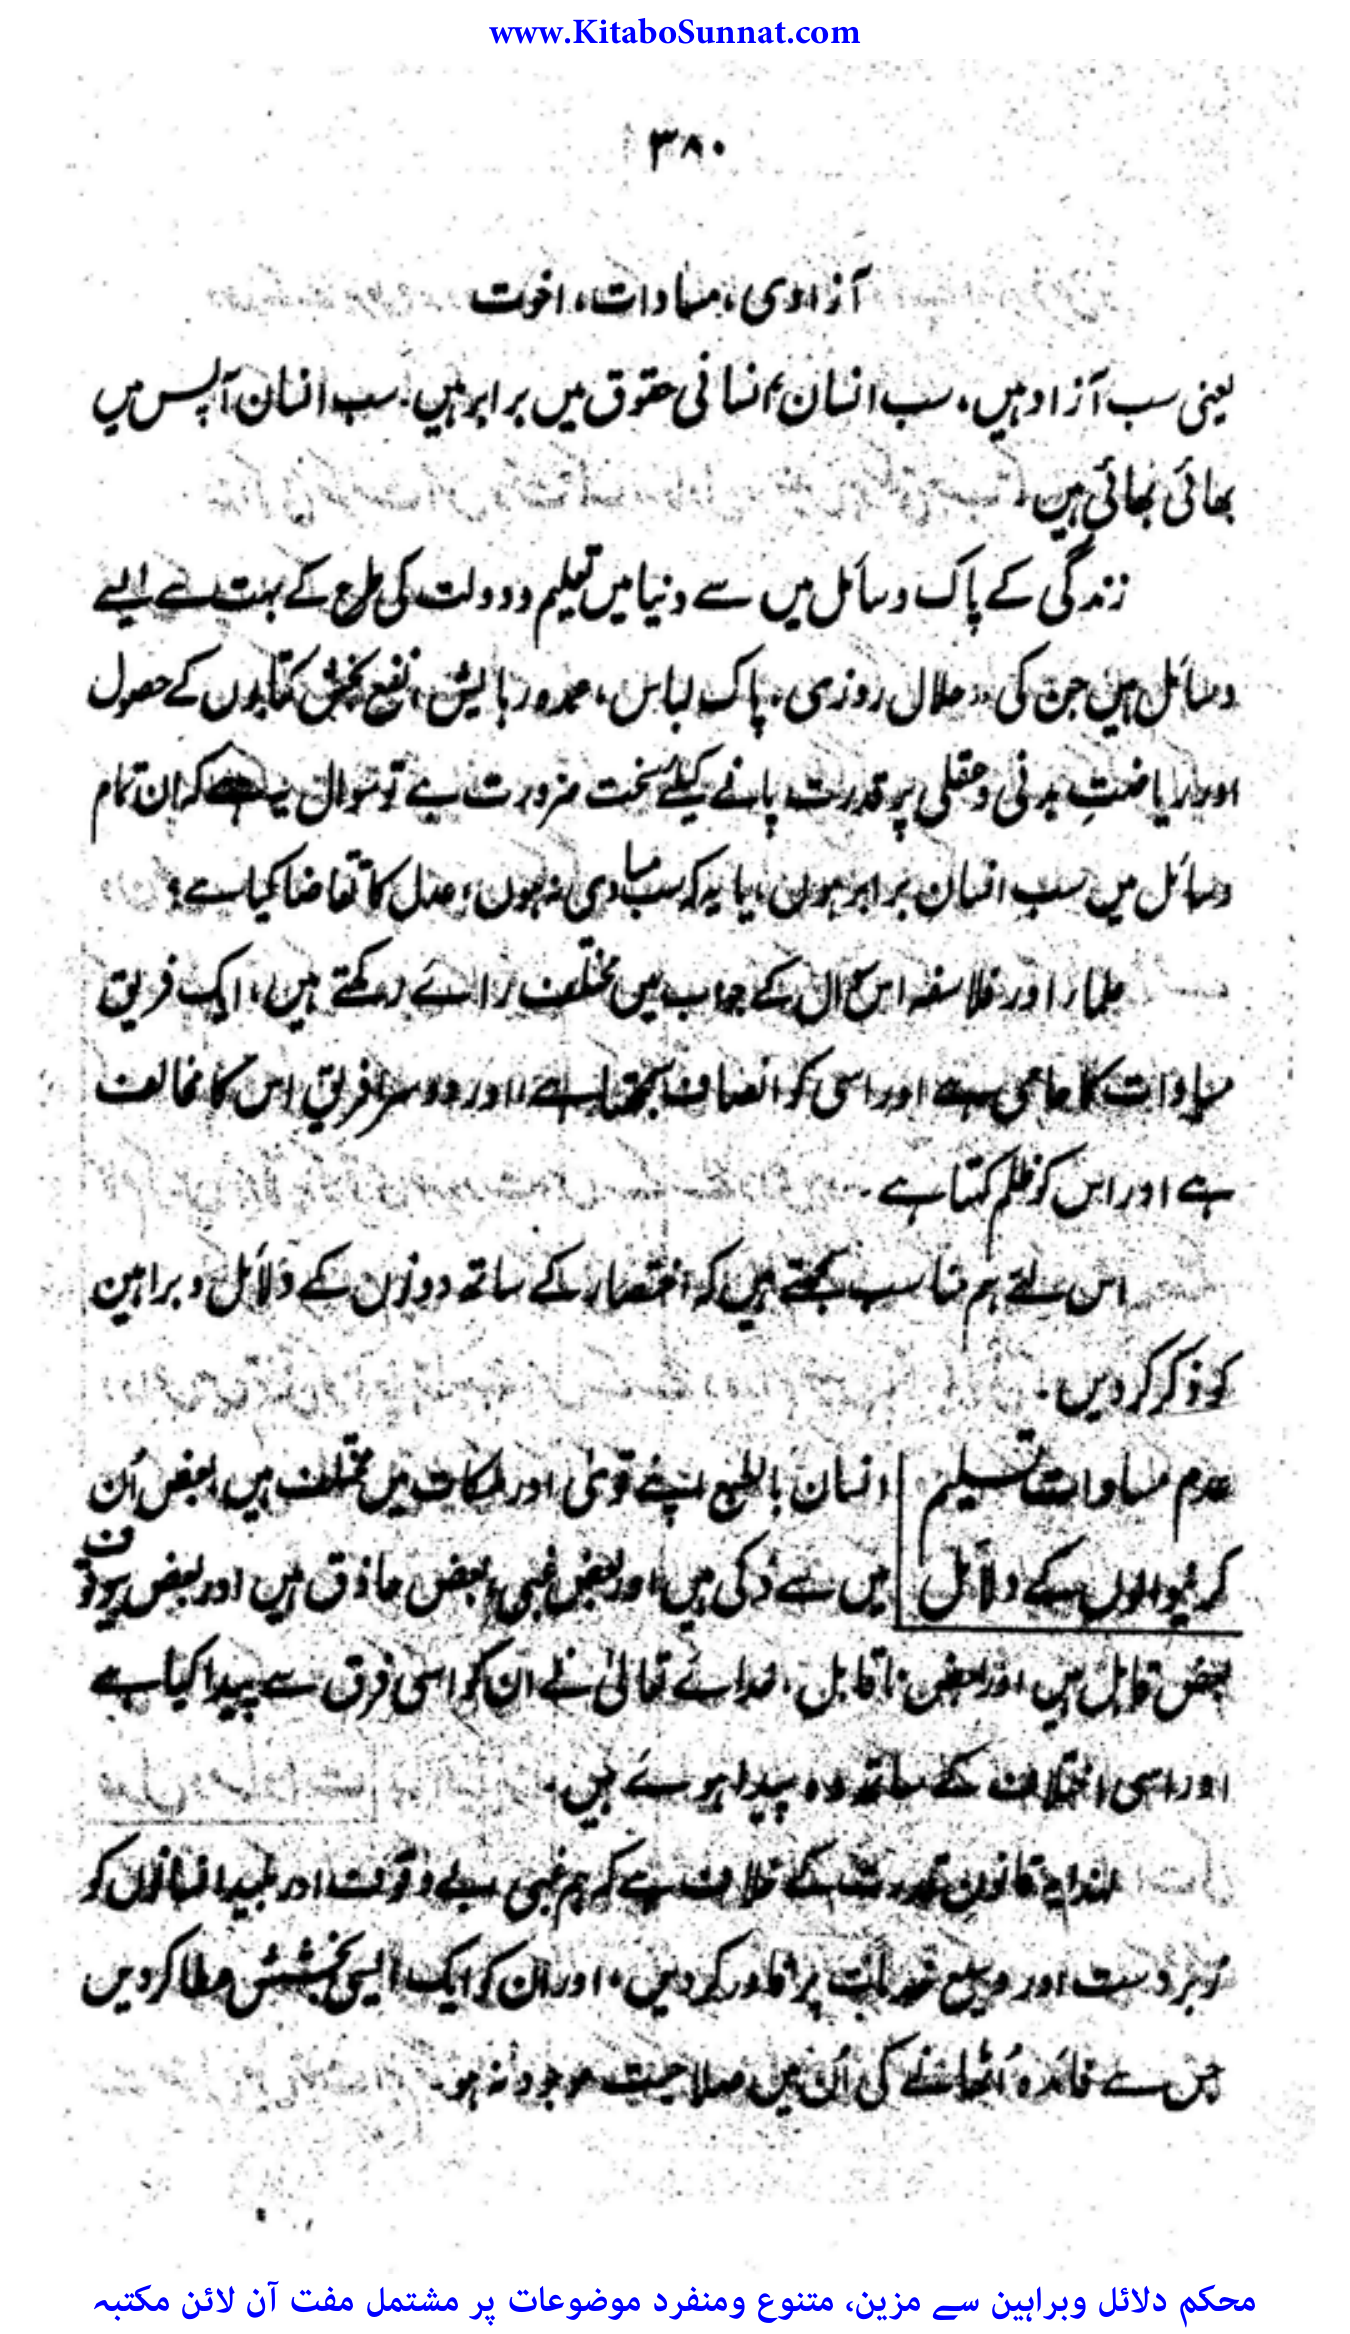 www.KitaboSunnat.com
۳۸۰
آزادی، مساوات، اخوت
یعنی سب آزاد ہیں، سب انسان انسانی حقوق میں برابر ہیں۔ سب انسان آپس میں
بھائی بھائی ہیں۔
زندگی کے پاک وسائل میں سے دنیا میں تعلیم و دولت کی طرح کے بہت سے ایسے
وسائل ہیں جن کی، حلال روزی، پاک لباس، عمدہ رہایش، نفع بخش کتابوں کے حصول
اور ریاضتِ بدنی و عقلی پر قدرت پانے کیلئے سخت ضرورت ہے تو سوال یہ ہے کہ ان تمام
وسائل میں سب انسان برابر ہوں، یا یہ کہ سب مساوی نہ ہوں، عدل کا تقاضا کیا ہے؟
علماء اور فلاسفہ اس سوال کے جواب میں مختلف رائے رکھتے ہیں، ایک فریق
مساوات کا حامی ہے اور اسی کو انصاف سمجھتا ہے، اور دوسرا فریق اس کا مخالف
ہے اور اس کو ظلم کہتا ہے۔
اس لئے ہم مناسب سمجھتے ہیں کہ اختصار کے ساتھ دونوں کے دلائل و براہین
کو ذکر کر دیں۔
عدم مساوات تسلیم انسان بالطبع اپنے قویٰ اور ملکات میں مختلف ہیں، بعض اُن
کرنیوالوں کے دلائل میں سے ذکی ہیں اور بعض غبی، بعض حاذق ہیں اور بعض بیوقوف
بعض قابل ہیں اور بعض ناقابل، خدائے تعالیٰ نے ان کو اسی فرق سے پیدا کیا ہے
اور اسی اختلاف کے ساتھ وہ پیدا ہوئے ہیں۔
لہٰذا یہ قانون قدرت کے خلاف ہے کہ ہم غبی بے وقوف اور بلید انسانوں کو
زبردست اور وسیع خدمات پر قادر کر دیں، اور ان کو ایک ایسی بخشش عطا کر دیں
جس سے فائدہ اُٹھانے کی اُن میں صلاحیت موجود نہ ہو۔
محکم دلائل وبراہین سے مزین، متنوع ومنفرد موضوعات پر مشتمل مفت آن لائن مکتبہ